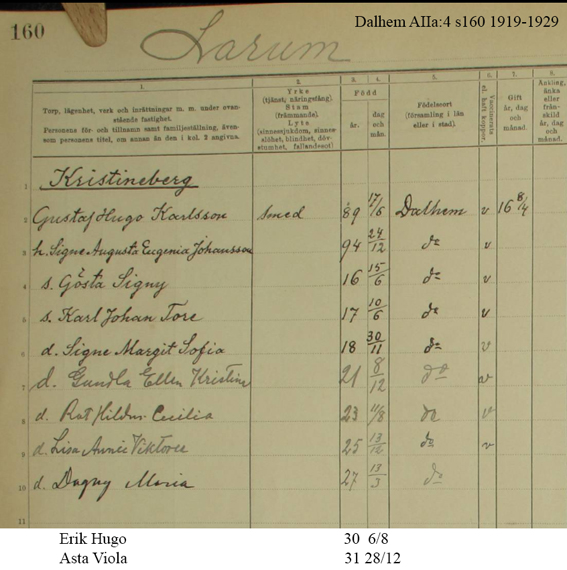 Dalhem AIIa:4 s160 1919-1929
160
Larum
1. 2. 3. 4. 5. 6. 7. 8.
Torp, lägenhet, verk och inrättningar m. m. under ovan-
stående fastighet.
Personens för- och tillnamn samt familjeställning, även-
som personens titel, om annan än den i kol. 2 angivna.
Yrke
(tjänst, näringsfång).
Stam
(främmande).
Lyte
(sinnessjukdom, sinnes-
slöhet, blindhet, döv-
stumhet, fallandesot)
Född
år.
dag
och
mån.
Födelseort
(församling i län
eller i stad).
Vaccinerats
el. haft koppor.
Gift
år, dag
och
månad.
änka
eller
från-
skild
år, dag
och
månad.
1 Kristineberg
2 Gustaf Hugo Karlsson smed 89 17/6 Dalhem v 16 8/4
3 h. Signe Augusta Eugenia Johansson 94 24/12 do v
4 s. Gösta Signy 16 15/6 do v
5 s. Karl Johan Tore 17 10/6 do v
6 d. Signe Margit Sofia 18 30/11 do v
7 d. Gundla Ellen Kristine 21 8/12 do v
8 d. Rut Hildur Cecilia 23 11/8 do v
9 d. Lisa Viktoria 25 13/12 do v
10 d. Dagny Maria 27 13/3 do
11
Erik Hugo 30 6/8
Asta Viola 31 28/12